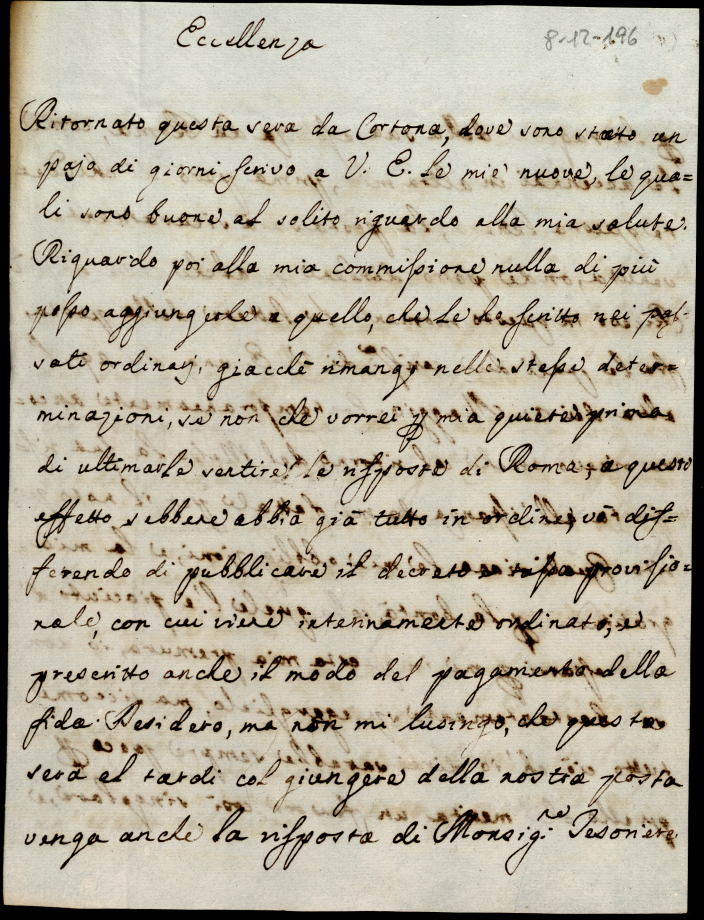 Eccellenza
8-12-196
Ritornato questa sera da Cortona, dove sono stato un
pajo di giorni scrivo a V. E. le mie nuove, le qua=
li sono buone al solito riguardo alla mia salute.
Riguardo poi alla mia commissione nulla di più
posso aggiungerle a quello, che le ho scritto nei pas-
sati ordinarj, giacchè rimango nelle stesse deter=
minazioni, se non che vorrei p mia quiete prima
di ultimarle sentire le risposte di Roma; a questo
effetto sebbene abbia già tutto in ordine, vò dif=
ferendo di pubblicare il decreto e provisio=
nale, con cui viene interinamente ordinato, e
prescritto anche il modo del pagamento della
fida. Desidero, ma non mi lusingo, che questa
sera al tardi col giungere della nostra posta
venga anche la risposta di Monsig.re Tesoriere